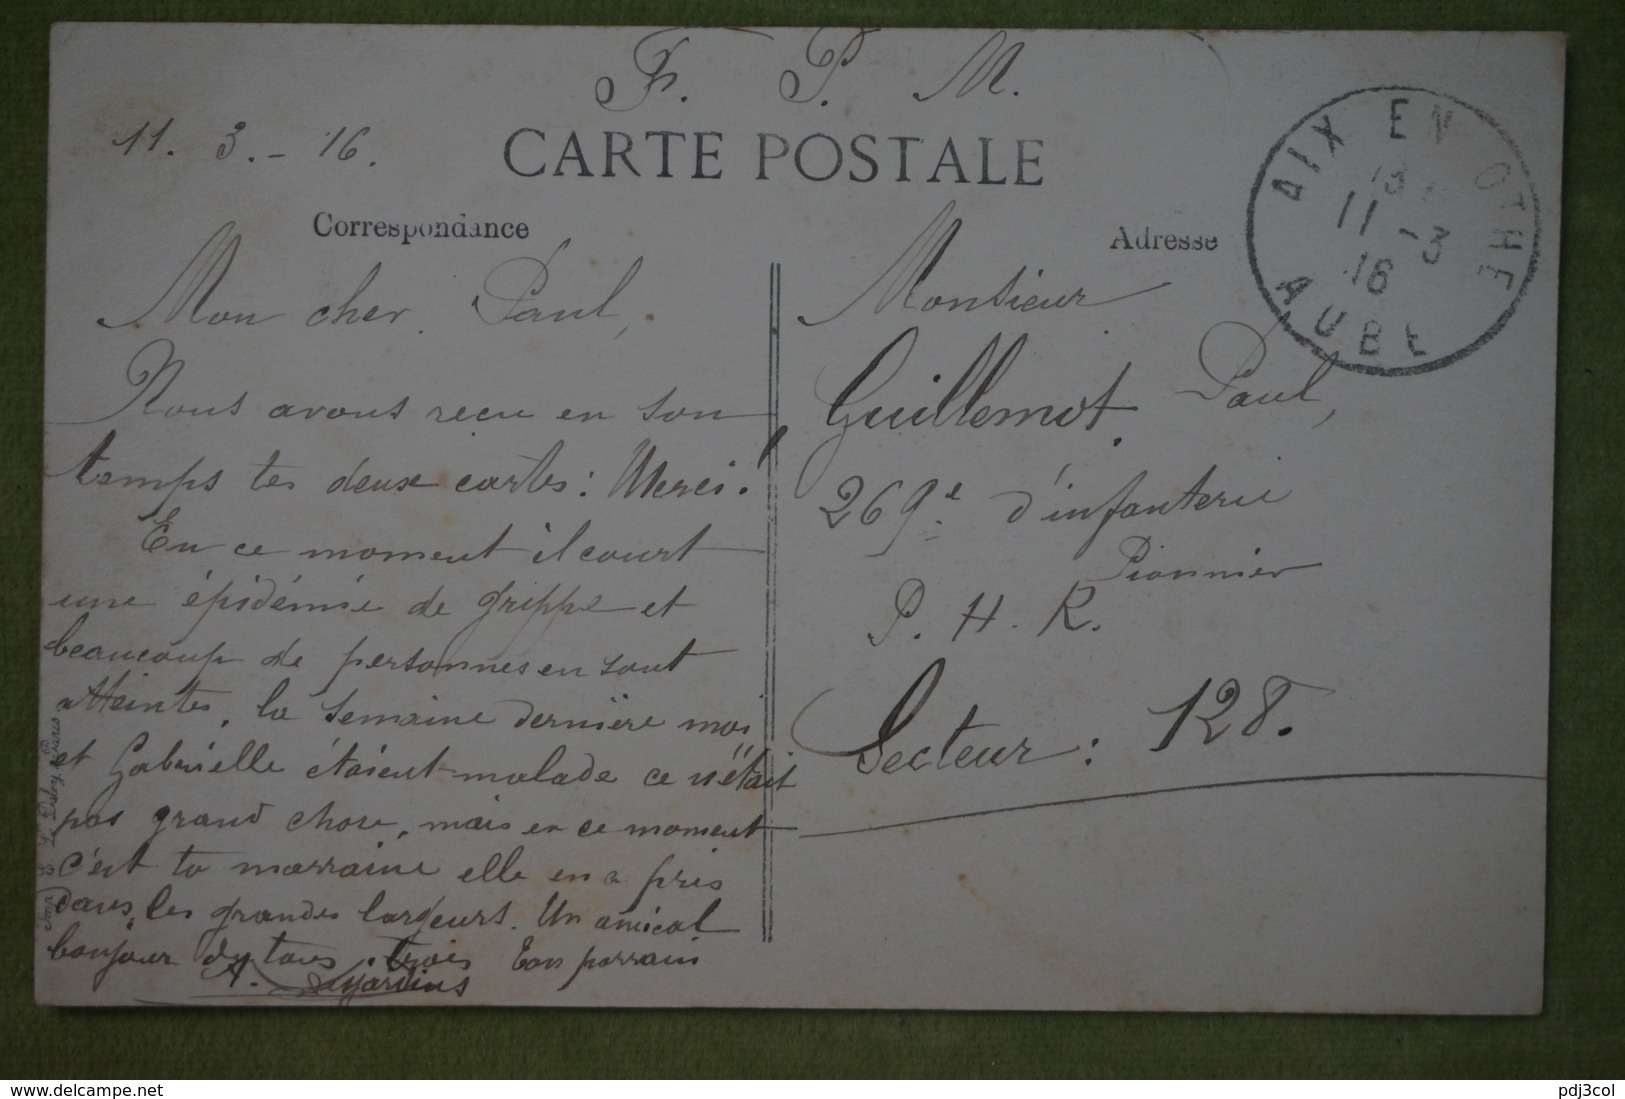 F. P. M.
11. 3. - 16.
CARTE POSTALE
Correspondance
Adresse
AIX EN OTHE
13
11 - 3
16
AUBE
Mon cher Paul,
Nous avons recu en son
temps tes deux cartes : Merci !
En ce moment il court
une épidémie de grippe et
beaucoup de personnes en sont
atteintes, la semaine dernière moi
et Gabrielle étaient malade ce n'était
pas grand chose, mais en ce moment
c'est ta marraine elle en a pris
dans les grandes largeurs. Un amical
bonjour de tous trois Ton parrain
A. Desjardins
Monsieur
Guillemot Paul,
269e d'infanterie
Pionnier
P. H. R.
Secteur : 128.
Imp. E. Le Deley, Paris
www.delcampe.net
pdj3col